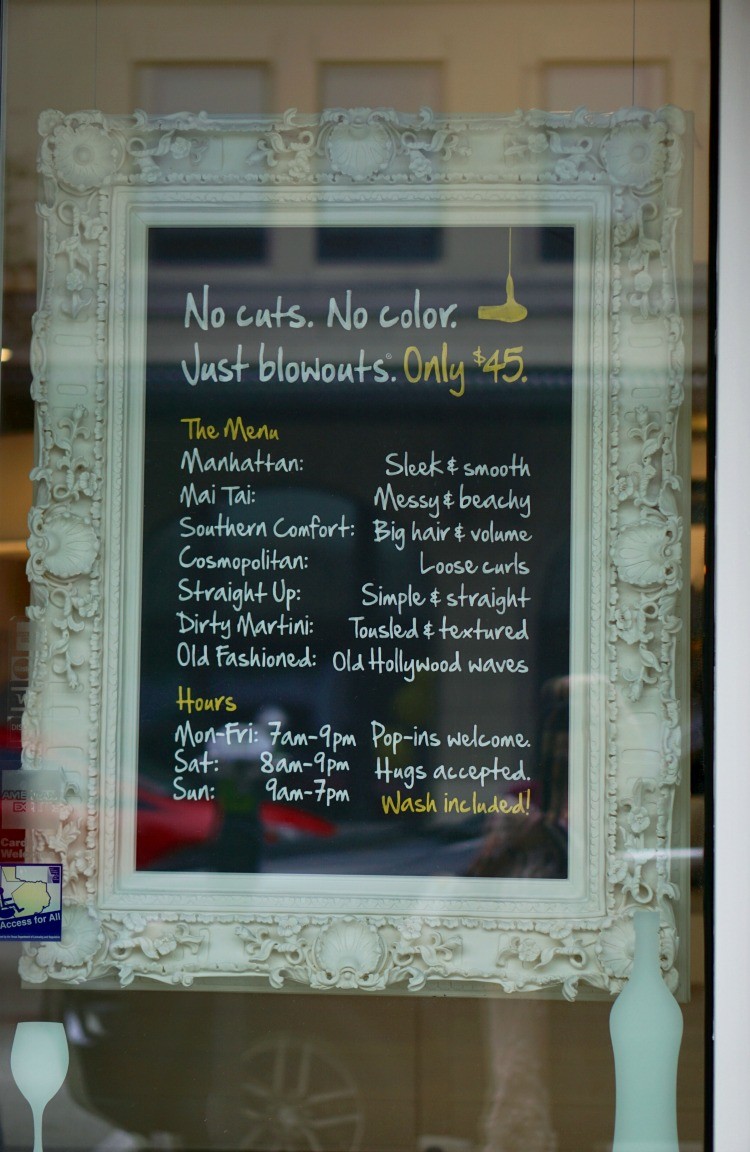 No cuts. No color.
Just blowouts.® Only $45.
The Menu
Manhattan: Sleek & smooth
Mai Tai: Messy & beachy
Southern Comfort: Big hair & volume
Cosmopolitan: Loose curls
Straight Up: Simple & straight
Dirty Martini: Tousled & textured
Old Fashioned: Old Hollywood waves
Hours
Mon-Fri: 7am-9pm Pop-ins welcome.
Sat: 8am-9pm Hugs accepted.
Sun: 9am-7pm Wash included!
Access for All